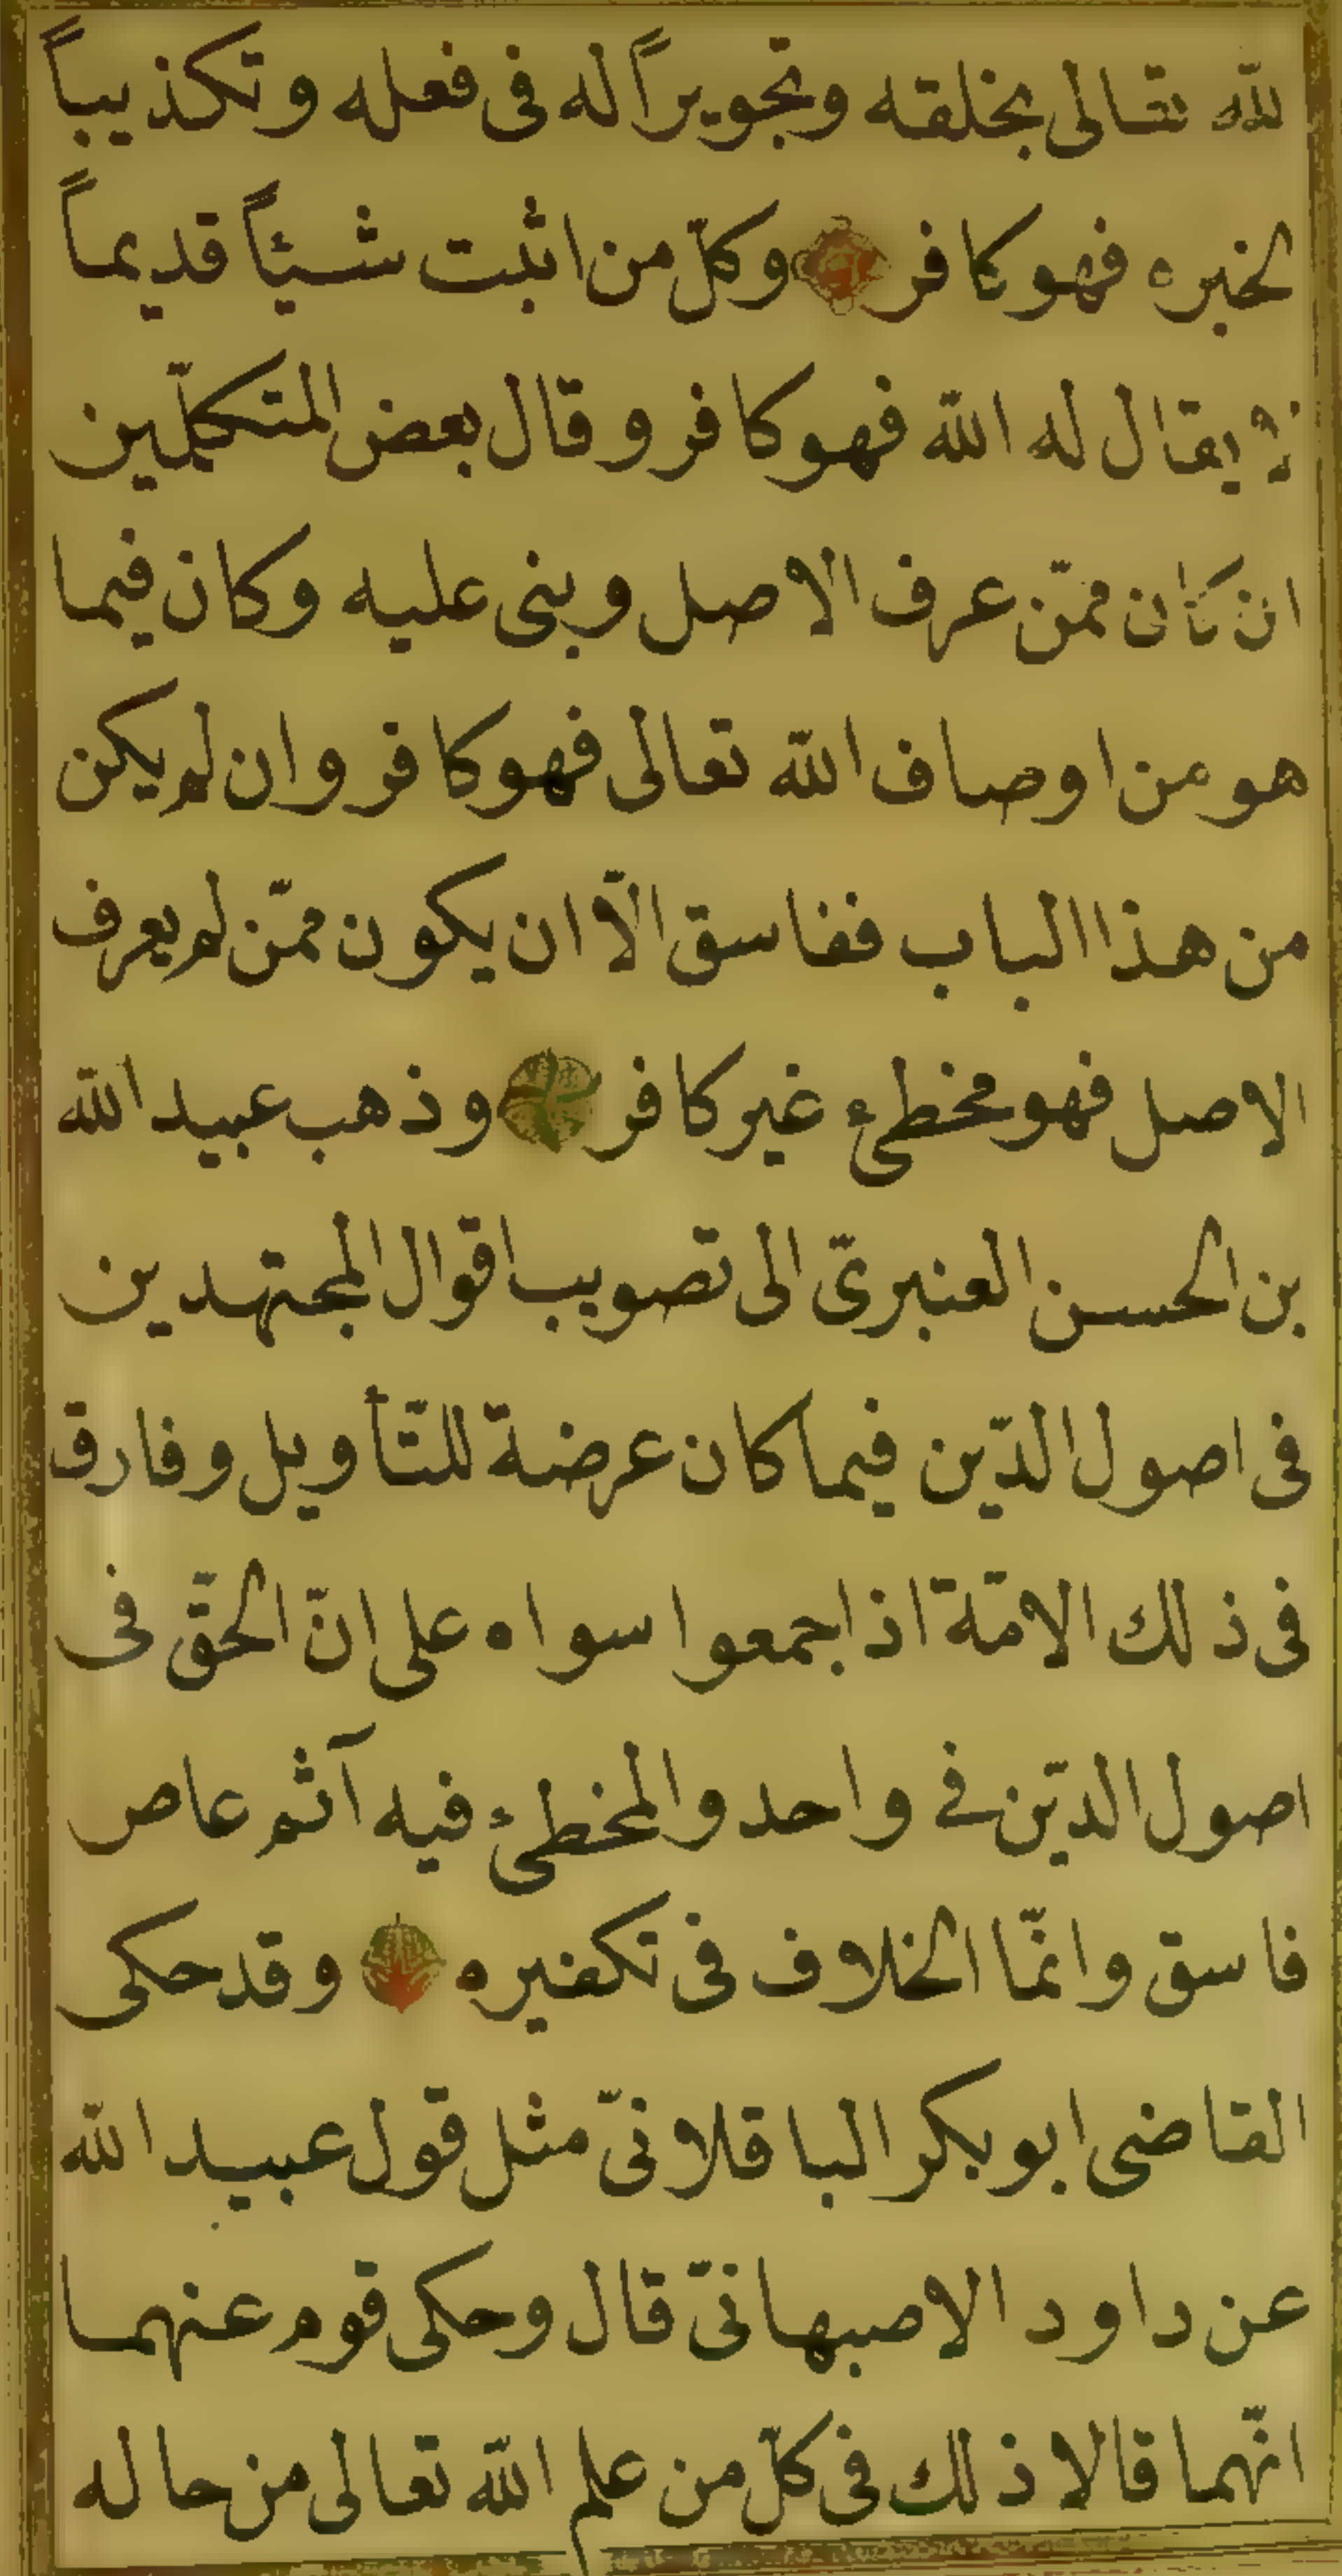 لله تعالى بخلقه وتجويراً له فى فعله وتكذيباً
لخبره فهو كافر وكلّ من اثبت شيئاً قديماً
لا يقال له الله فهو كافر وقال بعض المتكلّمين
ان كان ممّن عرف الاصل وبنى عليه وكان فيما
هو من اوصاف الله تعالى فهو كافر وان لم يكن
من هذا الباب ففاسق الّا ان يكون ممّن لم يعرف
الاصل فهو مخطئ غير كافر وذهب عبيد الله
بن الحسن العنبرىّ الى تصويب اقوال المجتهدين
فى اصول الدّين فيما كان عرضة للتّأويل وفارق
فى ذلك الامّة اذ اجمعوا سواه على انّ الحقّ فى
اصول الدّين فى واحد والمخطئ فيه آثم عاص
فاسق وانّما الخلاف فى تكفيره وقد حكى
القاضى ابو بكر الباقلانىّ مثل قول عبيد الله
عن داود الاصبهانىّ قال وحكى قوم عنهما
انّهما قالا ذلك فى كلّ من علم الله تعالى من حاله